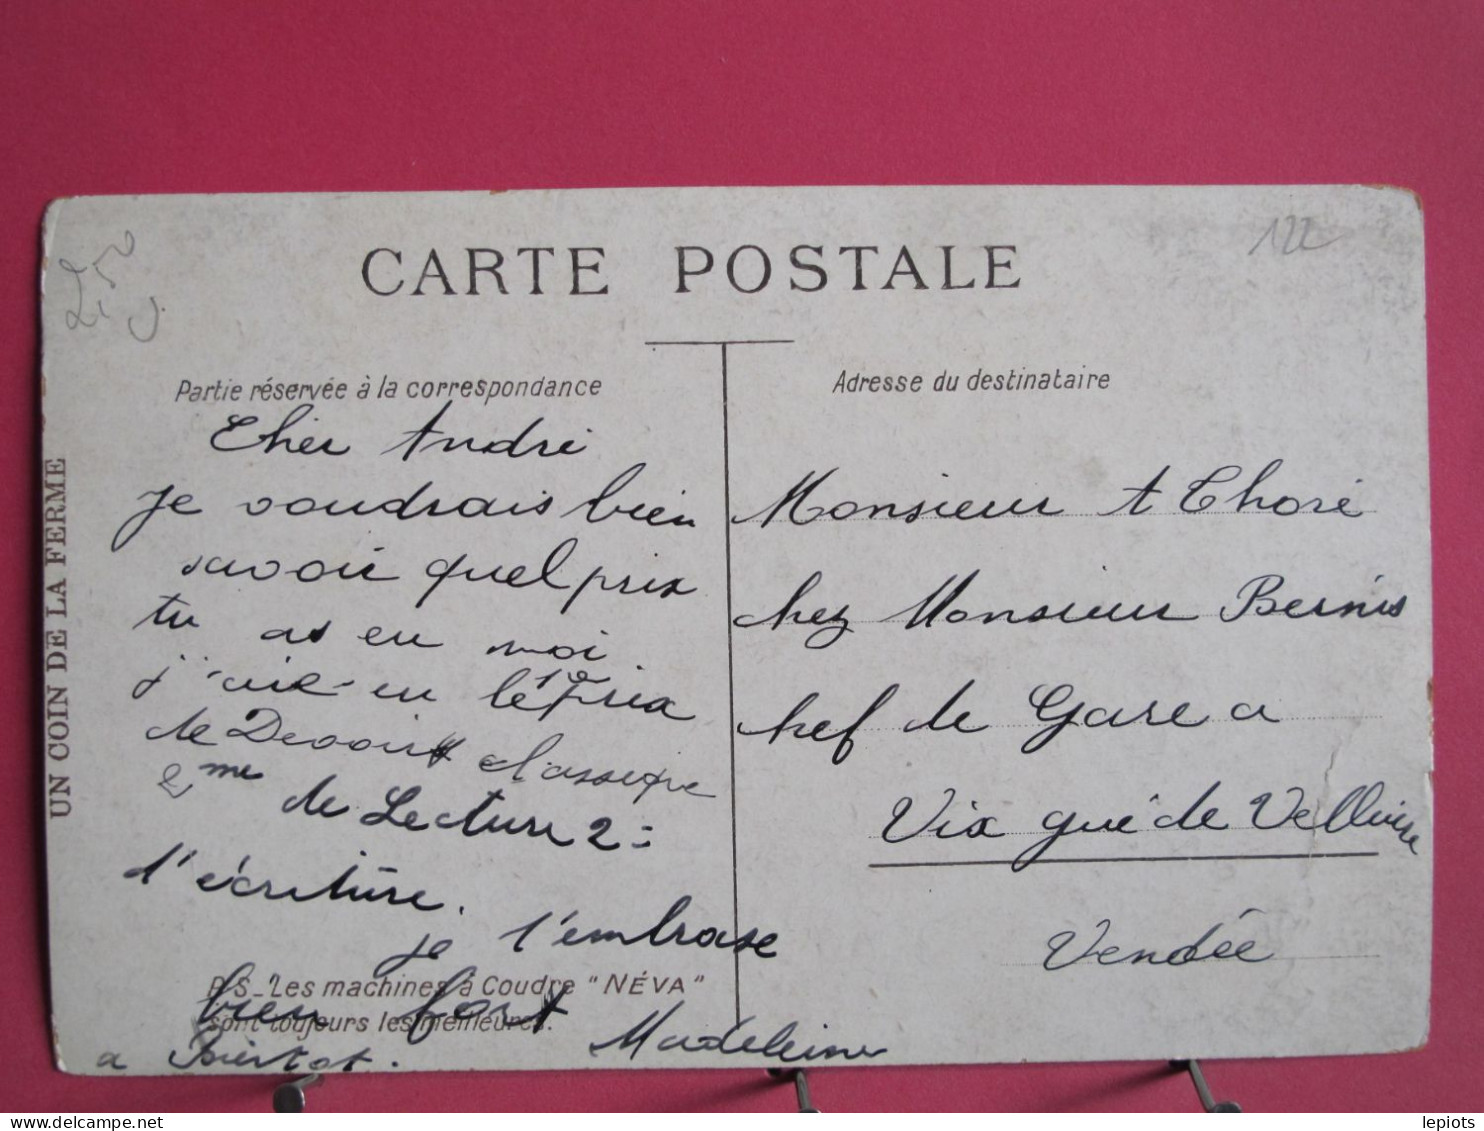 2,50
122
CARTE POSTALE
Partie réservée à la correspondance
Adresse du destinataire
UN COIN DE LA FERME
Cher André
je voudrais bien
savoir quel prix
tu as eu moi
j'ai eu le 1e prix
de Devoirs classique
2me de Lecture 2=
l'écriture.
je t'embrase
bien fort
Madeleine
a Bientot.
P.S_Les machines à Coudre "NÉVA"
sont toujours les meilleures.
Monsieur A Thoré
chez Monsieur Bernis
chef de Gare a
Vix gué de Velluire
Vendée
lepiots
delcampe.net